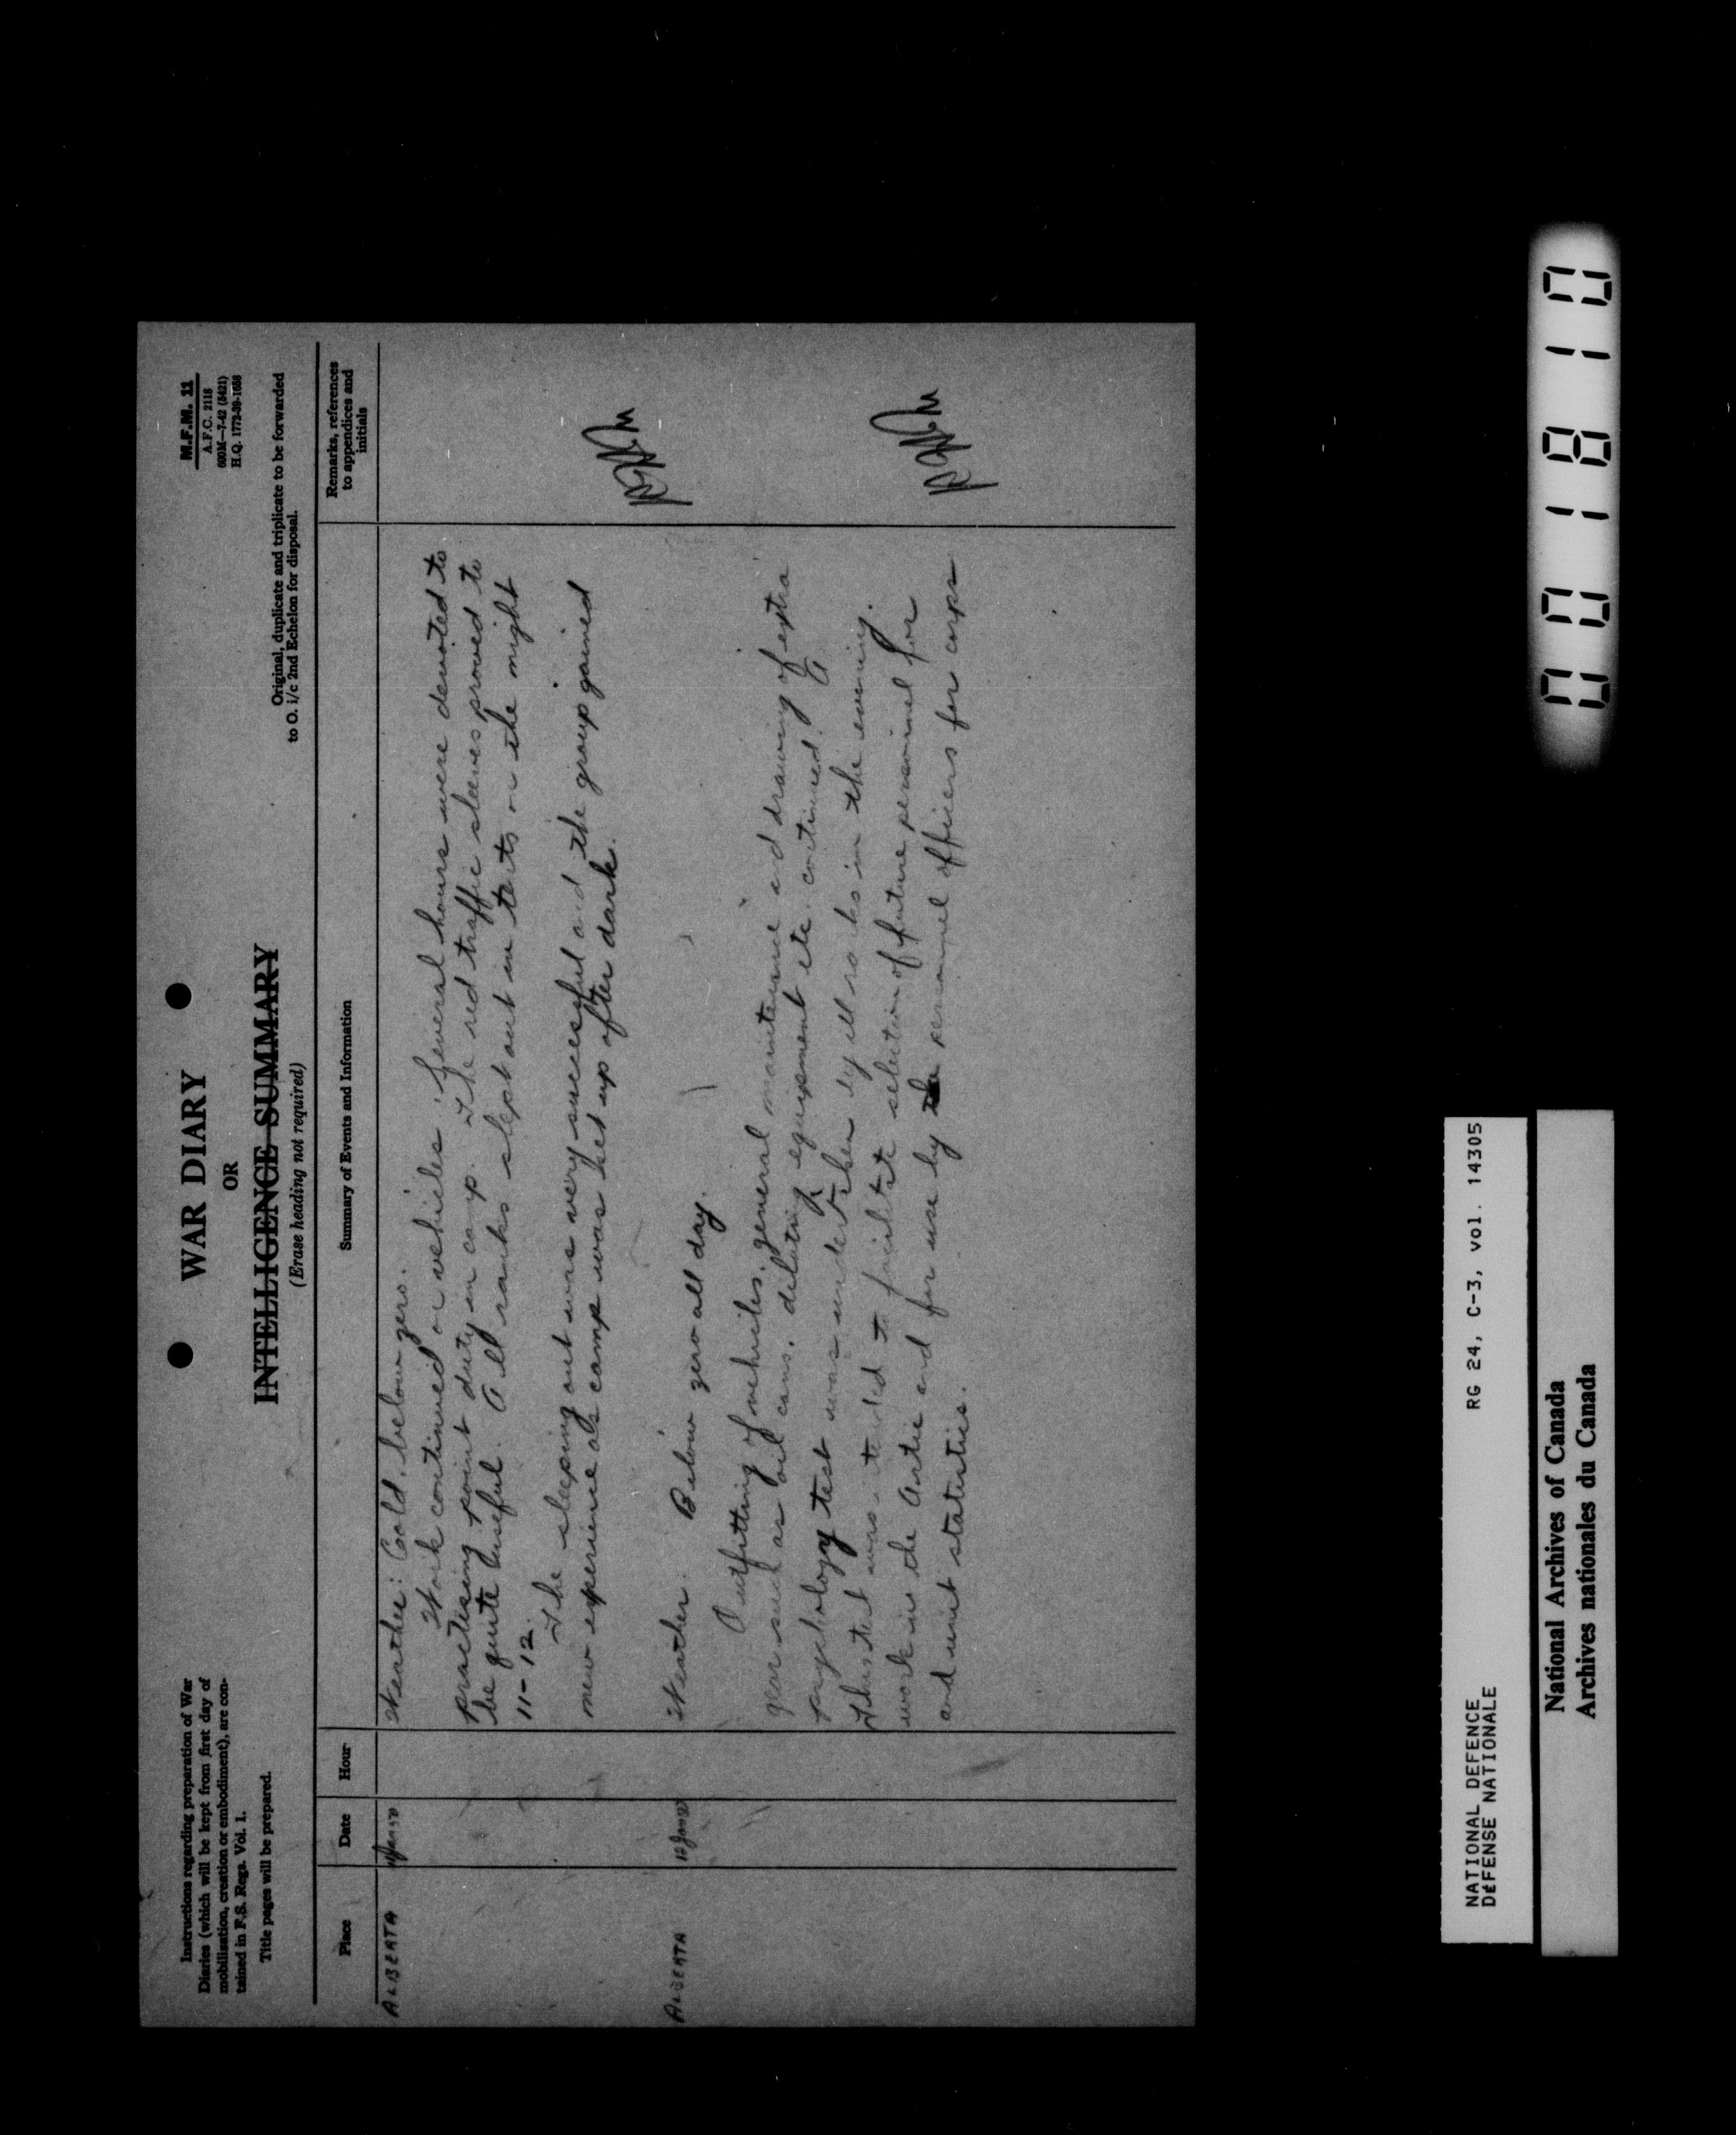 Instructions regarding preparation of War
Diaries (which will be kept from first day of
mobilisation, creation or embodiment), are con-
tained in F.S. Regs. Vol. 1.
Title pages will be prepared.
WAR DIARY
OR
INTELLIGENCE SUMMARY
(Erase heading not required)
M.F.M. 11
A.F.C. 2118
600M—7-42 (8421)
H.Q. 1772-39-1688
Original, duplicate and triplicate to be forwarded
to O. i/c 2nd Echelon for disposal.
Place Date Hour Summary of Events and Information Remarks, references
to appendices and
initials
ALBERTA 11 Jan Weather: Cold, below zero.
Work continued on vehicles. Several hours were devoted to
practising point duty in camp. The red traffic sleeves proved to
be quite useful. All ranks slept out in tents on the night
11-12.
The sleeping out was very successful and the group gained
new experience as camp was set up after dark.
ALBERTA 12 Jan Weather: Below zero all day.
Outfitting of vehicles, general maintenance and drawing of extra
gear such as oil cans, diluting equipment etc. continued. A
psychology test was undertaken by all ranks in the evening.
This test was intended to facilitate selection of future personnel for
work in the Artic and for use by the personnel officers for corps
and unit statistics.
NATIONAL DEFENCE
DÉFENSE NATIONALE
RG 24, C-3, vol. 14305
National Archives of Canada
Archives nationales du Canada
001810